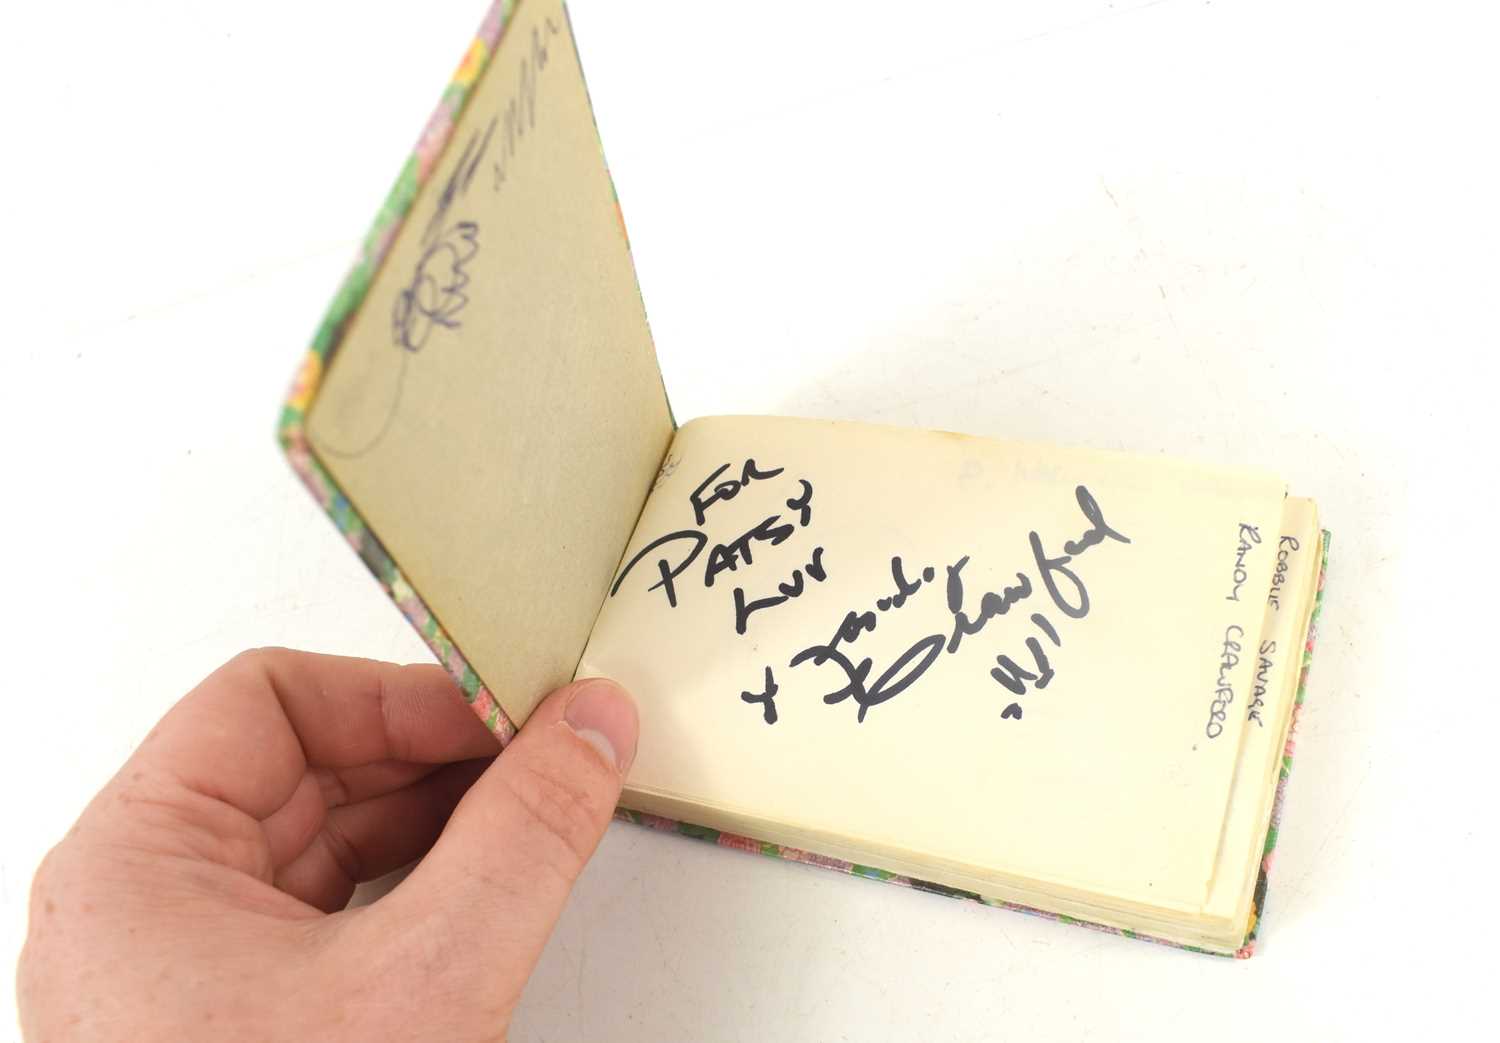 FOR
PATSY
LUV
x Randy
Crawford
RANDY CRAWFORD
ROBBIE SAVAGE